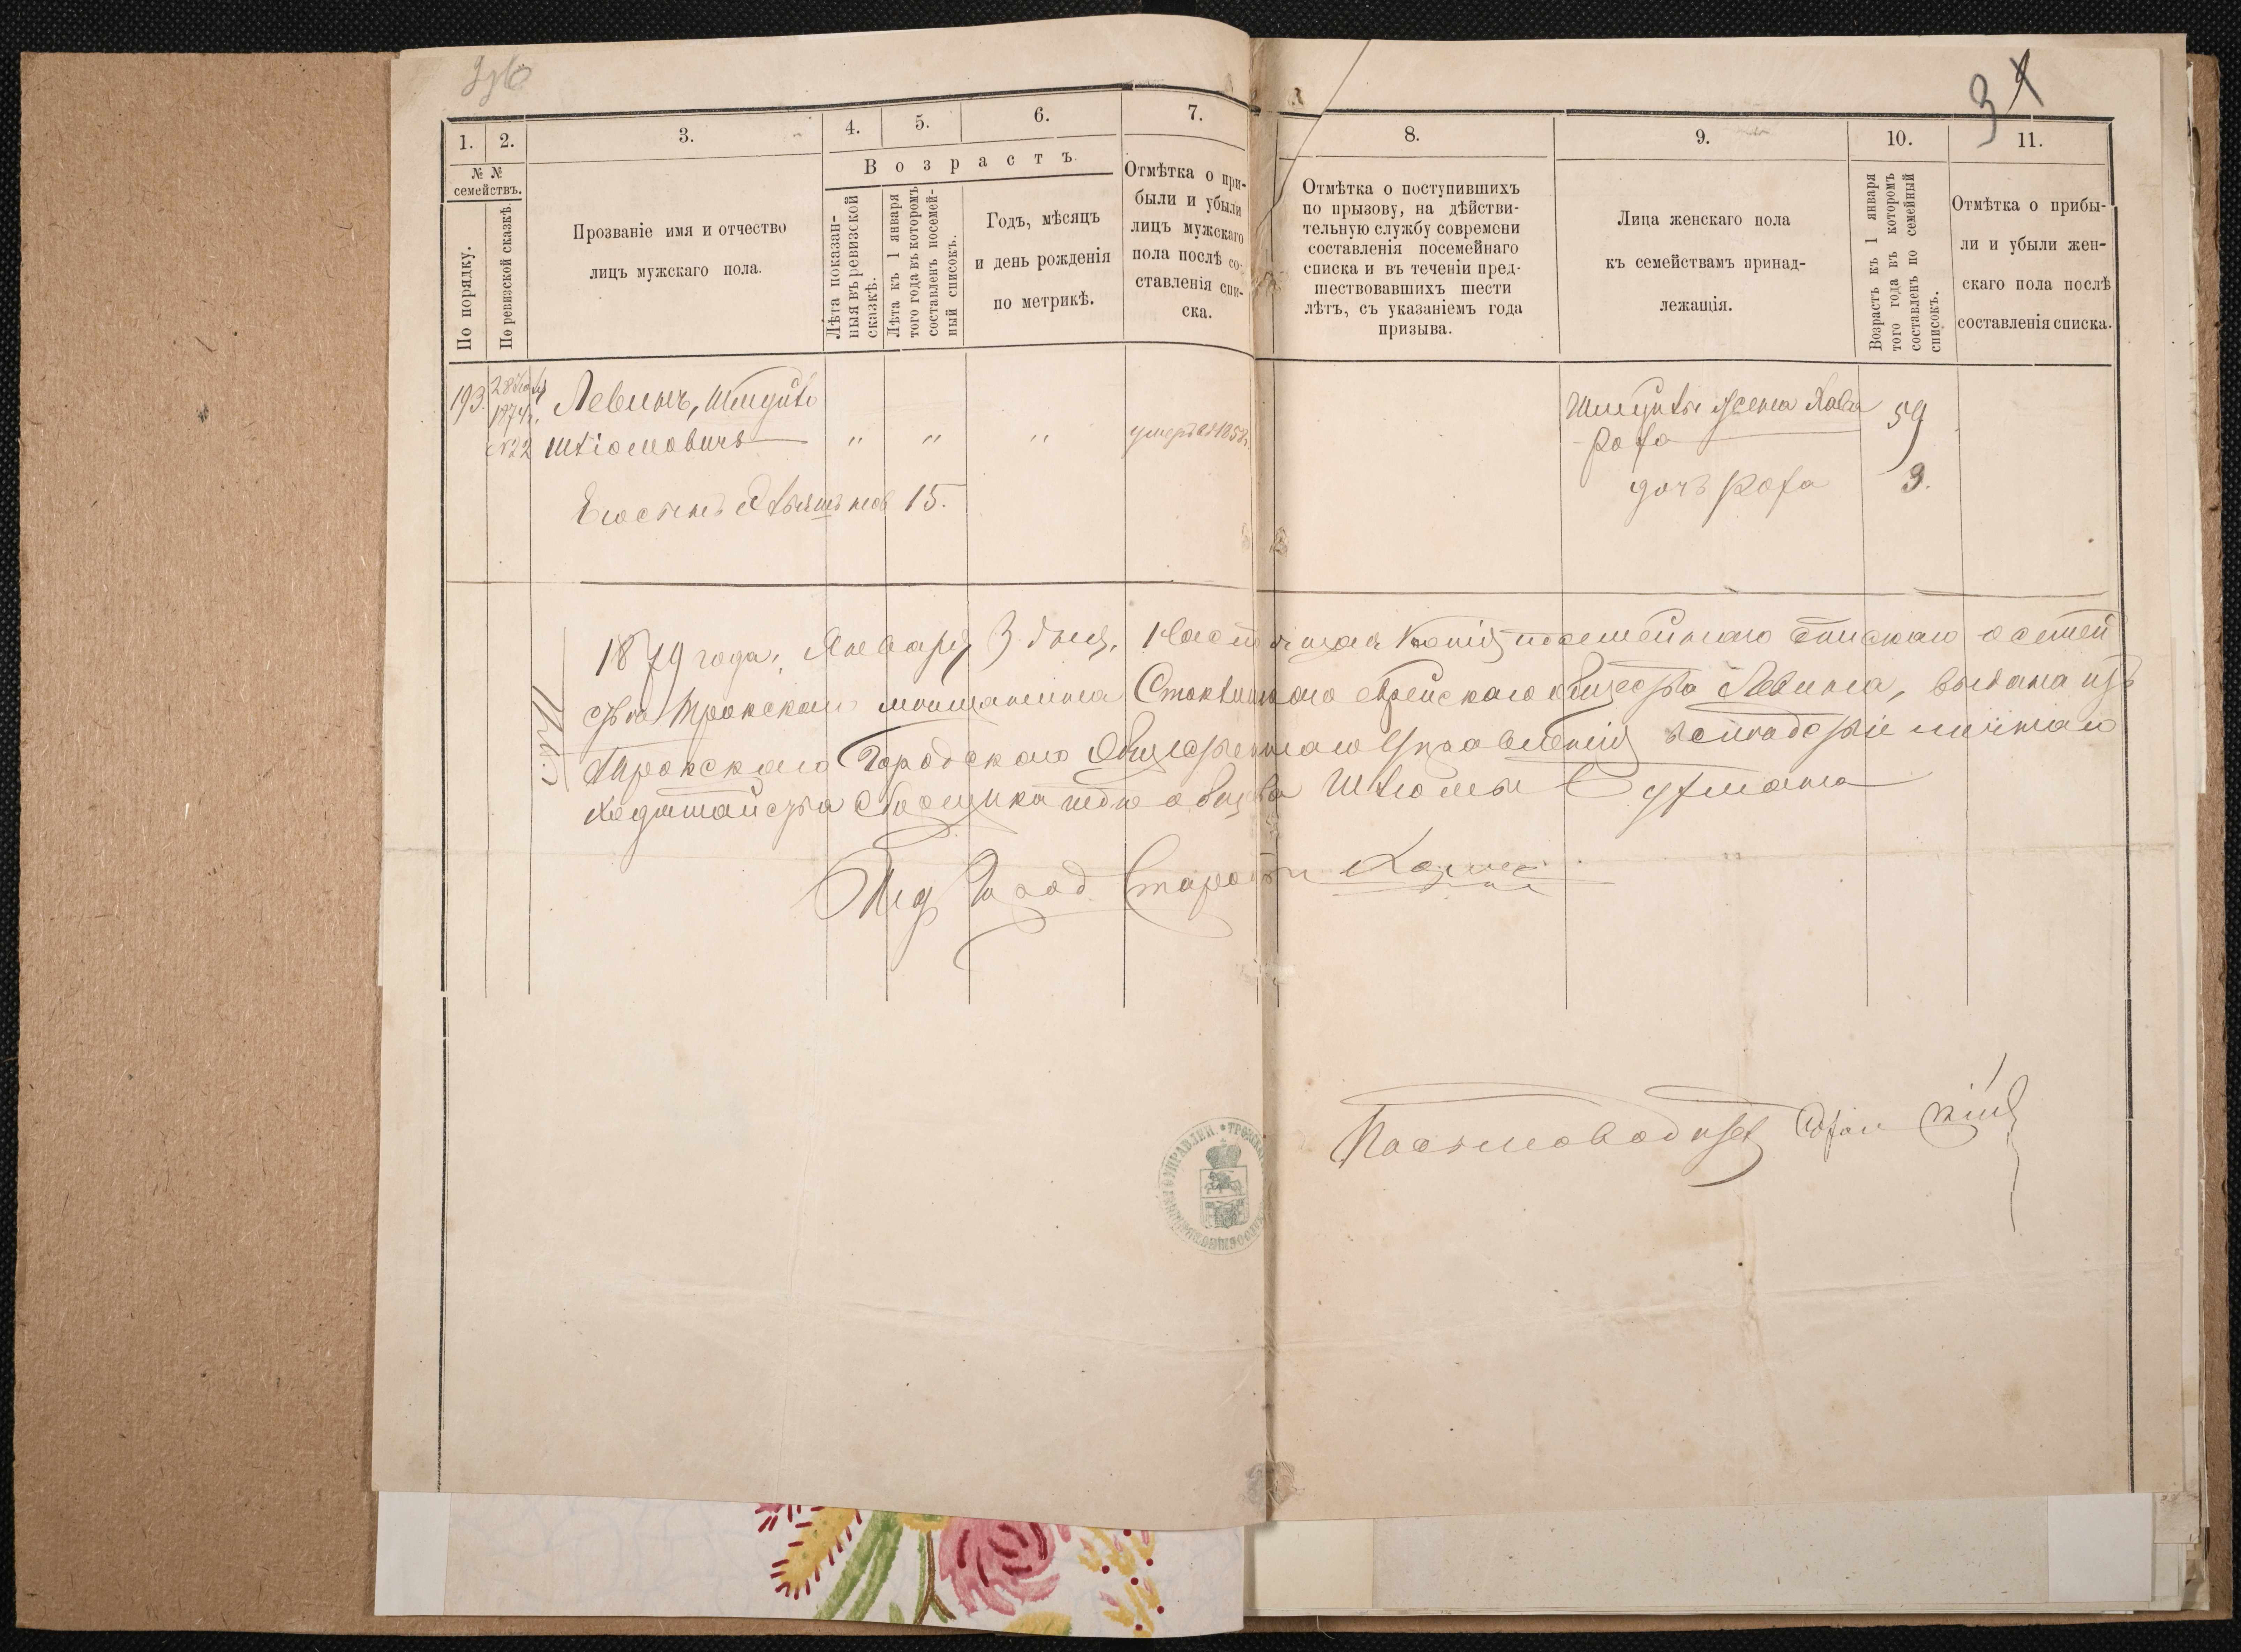 34
1.
2.
3.
4.
5.
6.
7.
8.
9.
10.
11.
№ №
семействъ.
По порядку.
По ревизской сказкѣ.
Прозваніе имя и отчество
лицъ мужскаго пола.
Возрастъ.
Лѣта показан-
ныя въ ревизской
сказкѣ.
Лѣта къ 1 января
того года въ которомъ
составленъ посемей-
ный списокъ.
Годъ, мѣсяцъ
и день рожденія
по метрикѣ.
Отмѣтка о при-
были и убыли
лицъ мужскаго
пола послѣ со-
ставленія спи-
ска.
Отмѣтка о поступившихъ
по прызову, на дѣйстви-
тельную службу современи
составленія посемейнаго
списка и въ теченіи пред-
шествовавшихъ шести
лѣтъ, съ указаніемъ года
призыва.
Лица женскаго пола
къ семействамъ принад-
лежащія.
Возрастъ къ 1 января
того года въ которомъ
составленъ по семейный
списокъ.
Отмѣтка о прибы-
ли и убыли жен-
скаго пола послѣ
составленія списка.
193.
1874 г.
№ 22
Левинъ, Шмуйло
Шліомовичъ " " " умеръ въ 1858 г.
15.
Шмуйлы жена Хава 59
дочь 9.
1879 года, Января 3 дня, Настоящая копія посемейнаго списка о семей
ствѣ Трокскаго мѣщанина еврейскаго общества Левина, выдана изъ
Трокскаго Городскаго Общественнаго Управленія вслѣдствіе личнаго
ходатайства Сборщика того общества Шліомы
Город. Староста
Письмоводитель